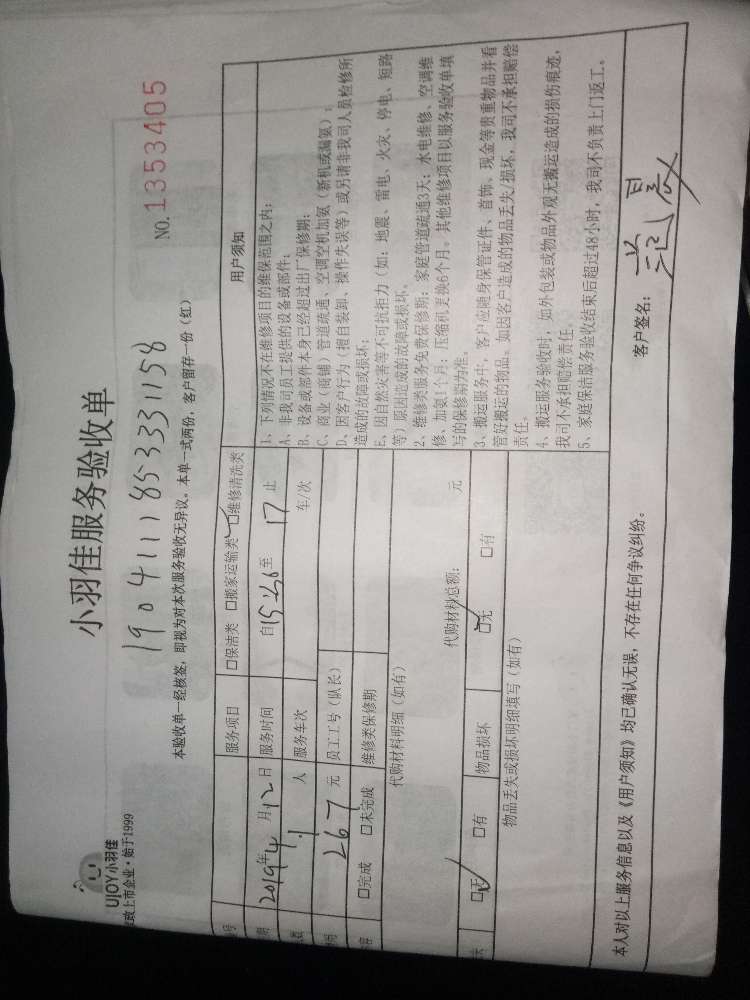 UJOY小羽佳
政上市企业·始于1999
小羽佳服务验收单
NO. 1353405
190411185333331158
本验收单一经核签，即视为对本次服务验收无异议。本单一式两份，客户留存一份（红）
号
服务项目 □保洁类 □搬家运输类 ☑维修清洗类
期 2019年4月12日
服务时间 自15:26至17止
数 1人
服务车次 车/次
267元
员工工号（队长）
□完成 □未完成
维修类保修期
代购材料明细（如有）
代购材料总额： 元
失 ☑无 □有
物品损坏 ☑无 □有
物品丢失或损坏明细填写（如有）
用户须知
1、下列情况不在维修项目的维保范围之内：
A、非我司员工提供的设备或部件；
B、设备或部件本身已经超过出厂保修期；
C、商业（商铺）管道疏通、空调空机加氨（新机或漏氨）；
D、因客户行为（擅自装卸、操作失误等）或另请非我司人员检修所
造成的故障或损坏；
E、因自然灾害等不可抗拒力（如：地震、雷电、火灾、停电、短路
等）原因造成的故障或损坏。
2、维修类服务免费保修期：家庭管道疏通3天；水电维修、空调维
修、加氨1个月；压缩机更换6个月。其他维修项目以服务验收单填
写的保修期为准。
3、搬运服务中，客户应随身保管证件、首饰、现金等贵重物品并看
管好搬运的物品。如因客户造成的物品丢失/损坏，我司不承担赔偿
责任。
4、搬运服务验收时，如外包装或物品外观无搬运造成的损伤痕迹，
我司不承担赔偿责任。
5、家庭保洁服务验收结束后超过48小时，我司不负责上门返工。
本人对以上服务信息以及《用户须知》均已确认无误，不存在任何争议纠纷。
客户签名：